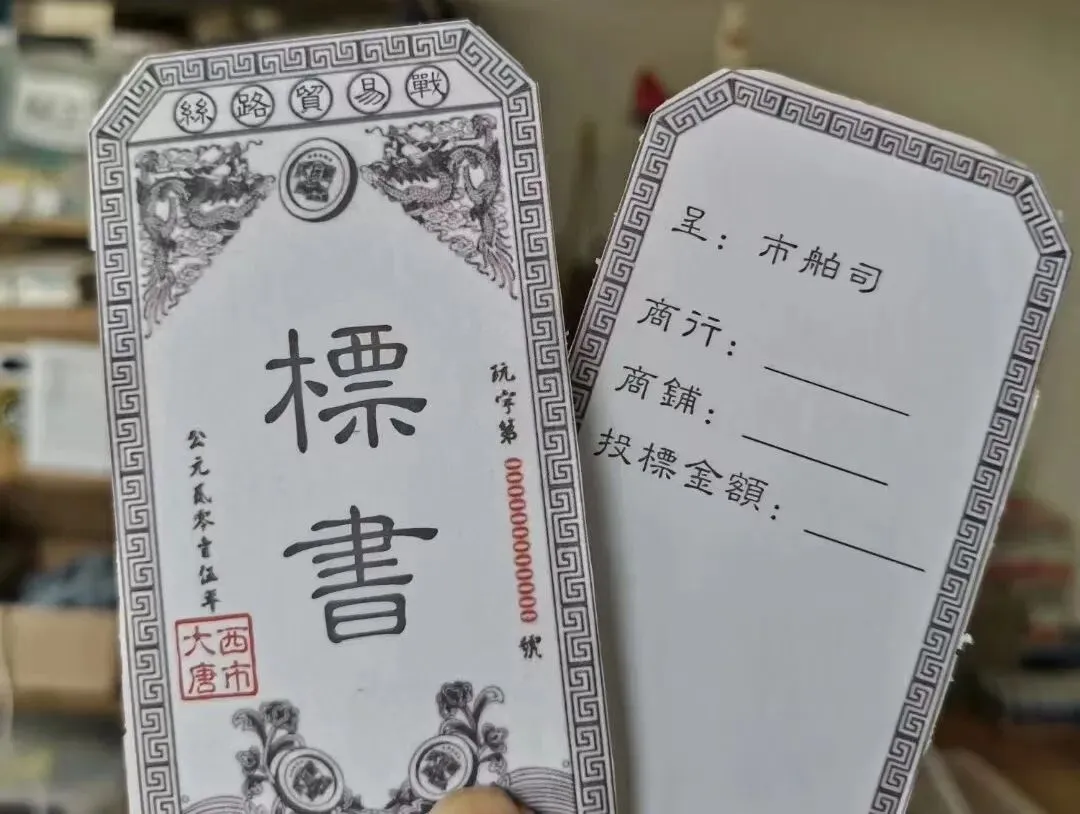 絲路貿易戰
標書
玩字第000000000000號
公元貳零壹伍年
大唐西市
呈：市舶司
商行：
商鋪：
投標金額：